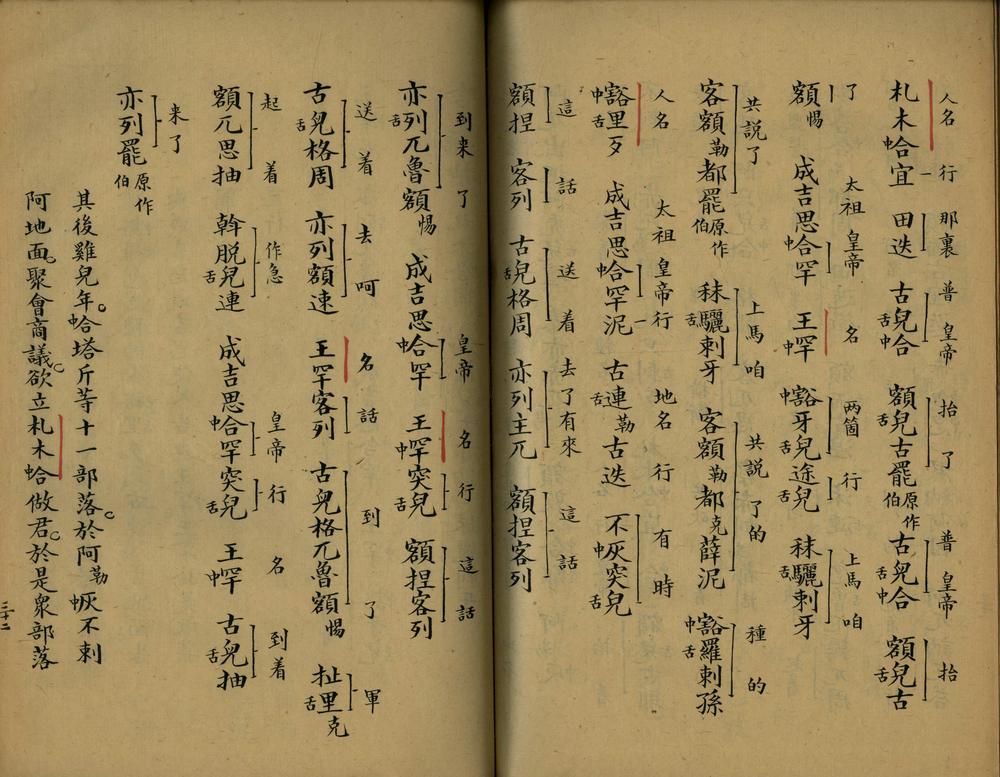 人名 行 那裏 普 皇帝 抬了 普 皇帝 抬
札木中合宜 田迭 古舌兒中合 額舌兒古罷原作伯 古舌兒中合 額舌兒古
了 太祖 皇帝 名 两箇 行 上馬咱
額惕 成吉思中合罕 王中罕 中豁牙舌兒途舌兒 秣舌驪剌牙
共説了 上馬咱 共説了的 種的
客額勒都罷原作伯 秣舌驪剌牙 客額勒都克薛泥 中豁舌羅剌孫
人名 太祖 皇帝行 地名 行 有時
中豁舌里歹 成吉思中合罕泥 古舌連勒古迭 不中灰突舌兒
這 話 送着 去了有來 這話
額捏 客列 古舌兒格周 亦列主兀 額捏客列
到来了 皇帝 名 行 這話
亦舌列兀魯額惕 成吉思中合罕 王中罕突舌兒 額捏客列
送着 去呵 名 話 到了 軍
古舌兒格周 亦列額速 王罕客列 古兒格兀魯額惕 扯舌里克
起着 作急 皇帝 行 名 到着
額兀思抽 斡脱舌兒連 成吉思中合罕突舌兒 王中罕 古舌兒抽
来了
亦列罷原作伯
其後雞兒年。中合塔斤等十一部落。於阿勒中灰不剌
阿地面。聚會商議。欲立札木中合做君。於是衆部落
三十二